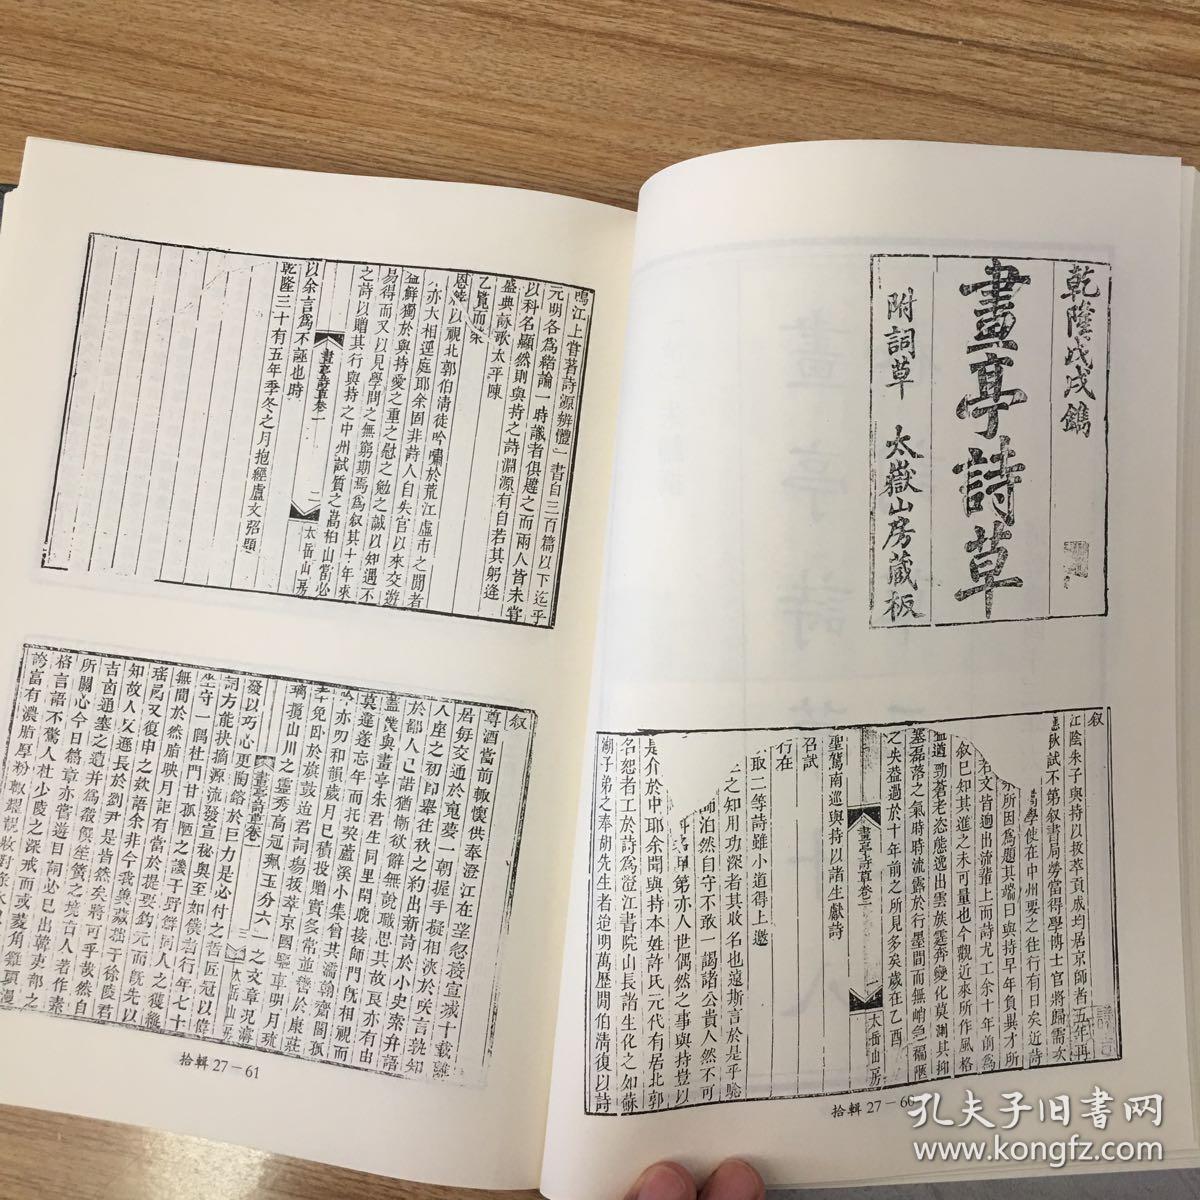 乾隆戊戌鐫
畫亭詩草
附詞草　太嶽山房藏板
叙
江陰朱子與持以拔萃貢成均居京師者五年再
秋試不第叙書局勞當得學博士官將歸需次
學使在中州要之往行有日矣近詩
來所因爲題其端曰與持早年負異才所
若文皆迥出流輩上而詩尤工余十年前爲
叙已知其進之未可量也今觀近來所作風格
遒勁蒼老态態逸出雲族霆奔變化莫測其抑
塞磊落之氣時時流露於行墨間而無峭急褊隘
之失益過於十年前之所見多矣歲在乙酉
畫亭詩草卷一
一
太岳山房
聖駕南巡與持以諸生獻詩
行在
名試
取二等詩雖小道得上邀
之知用功深者其收名也遠斯言於是乎驗
師泊然自守不敢一謁諸公貴人然不可
第亦人世偶然之事與持豈以
是介於中耶余聞與持本姓許氏元代有居北郭
名恕者工於詩爲澄江書院山長諸生化之如蘇
湖子弟之奉胡先生者迨明萬歷間伯清復以詩
拾輯 27－60
鳴江上嘗著詩源辨體一書自三百篇以下迄乎
元明各爲緒論一時識者俱韙之而兩人皆未嘗
以科名顯然則與持之詩淵源有自若其躬逢
盛典詠歌太平陳
乙覽而
恩 以視北郭伯清徒吟嘯於荒江虛市之間者
亦大相逕庭耶余固非詩人自失官以來交遊
益鮮獨於與持愛之重之慰之勉之誠以知遇不
易得而又以見學問之無窮期焉爲叙其十年來
之詩以贈其行與持之中州試質之嵩柏山當必
畫亭詩草卷一
二
太岳山房
以余言爲不誣也時
乾隆三十有五年季冬之月抱經盧文弨題
叙
尊酒當前輙懷供奉澄江在望忽淩宣城十載離
居每交通於寬夢一朝握手擬相浹於咲言孰知
入座之初印舉往秋之約出新詩於小史索弁語
於鄙人己諾猶慚欲辭無說職思其故良亦有由
蓋僕與畫亭朱君生同里閈晚接師門既相視而
莫逆遂忘年而托契蘆溪小集曾其濡翰齋閣孤
吟亦叨和韻歲月已積投贈實多常並轡於康莊
幸免囙於旗鼓道君詞塲拔萃京國驅車明月疏
璃攬山川之靈秀高冠珮玉分六一之文章況海
發以巧心更陶鎔於巨力是必付之哲匠冠以偉
畫亭詩草卷一
三
太岳山房
詞方能抉摘源流發宣秘奥至如僕者行年七十
坐守一隅杜門甘孤陋之譏千野無同人之獲纔
無間於然脂映月詎有當於提要鈎元而旣先以
瑤函又復申之欵語余非今
知故人又遜長於劉尹是皆然矣將可乎哉然自
吉
所關心今日篇章亦嘗遊目詞必已出韓吏部之
格言語不驚人杜少陵之深戒而或菱角雞頭漫
誇富有濃脂厚粉輙耀
拾輯 27－61
孔夫子旧书网
www.kongfz.com